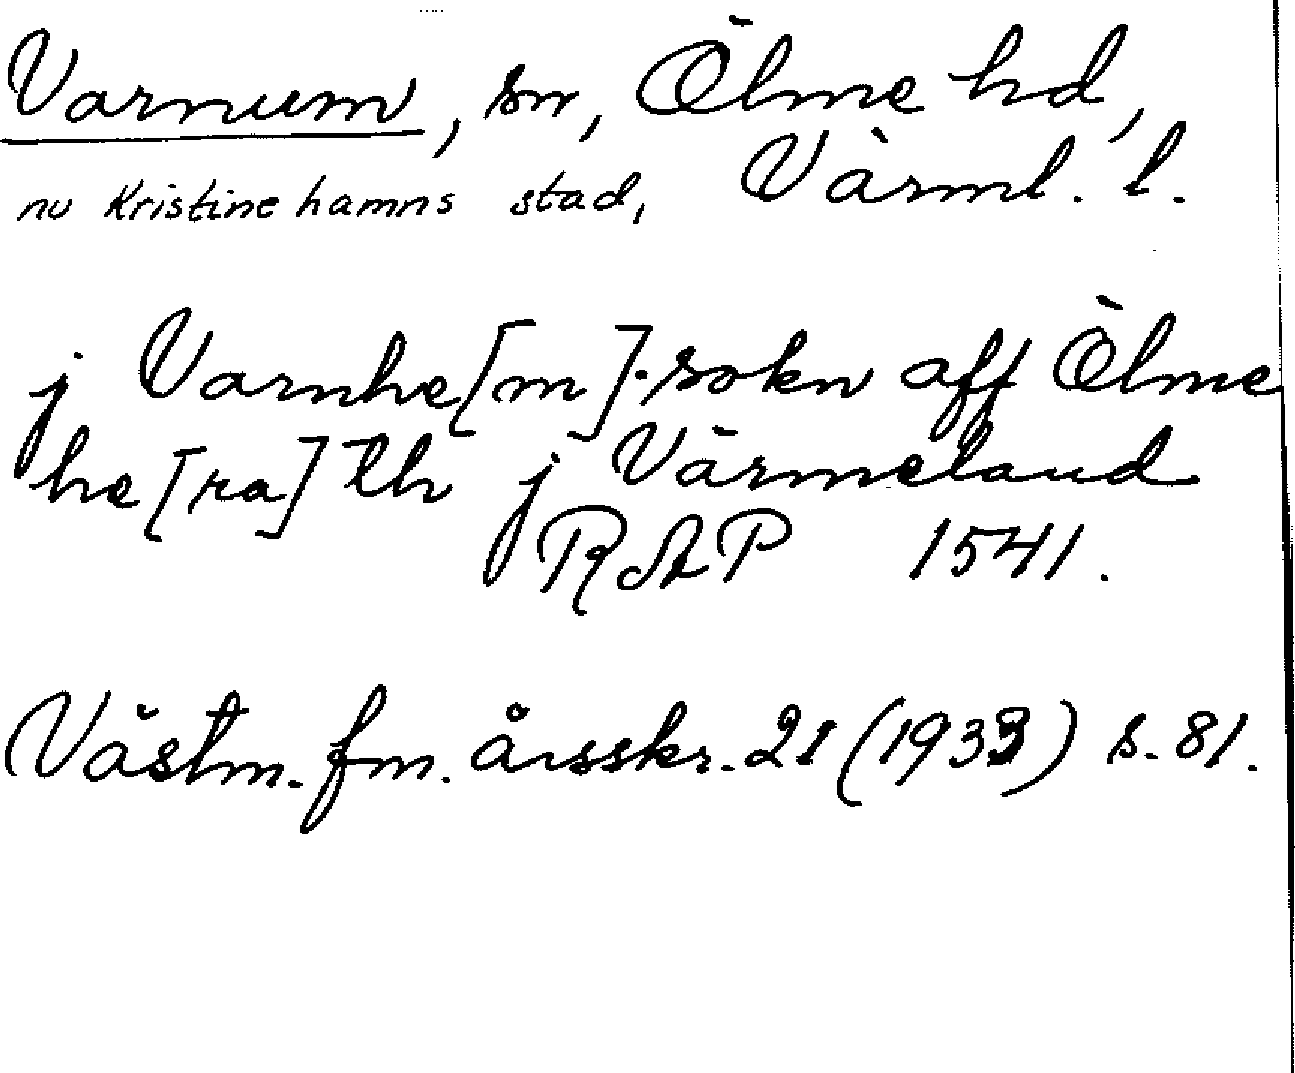 Varnum, sn, Ölme hd,
nu Kristinehamns stad, Värml. l.
j Varnhe[m]. sokn aff Ölme
he[ra]th j Värmeland
RAP 1541.
Västm. fm. årsskr. 21 (1933) s. 81.